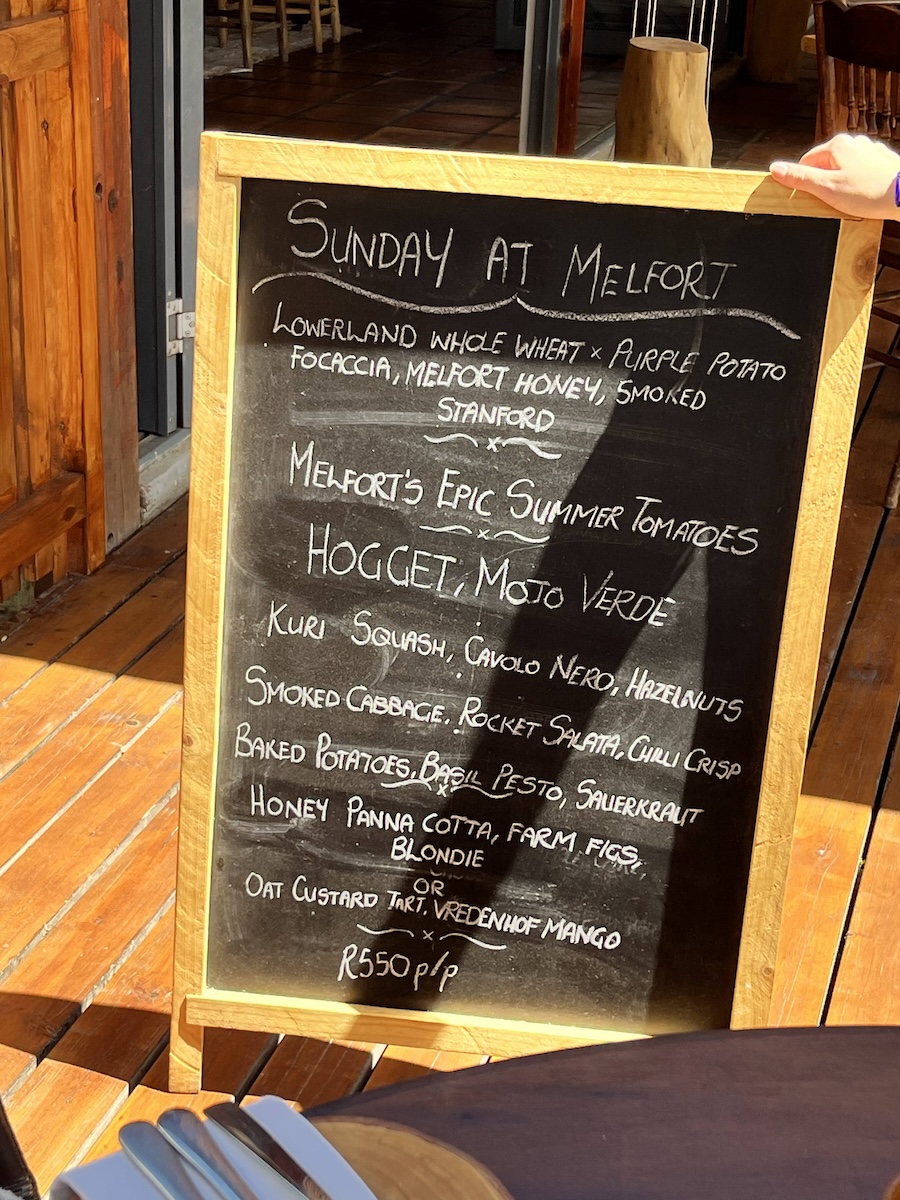 SUNDAY AT MELFORT
LOWERLAND WHOLE WHEAT x PURPLE POTATO
FOCACCIA, MELFORT HONEY, SMOKED
STANFORD
x
MELFORT'S EPIC SUMMER TOMATOES
x
HOGGET, MOJO VERDE
KURI SQUASH, CAVOLO NERO, HAZELNUTS
SMOKED CABBAGE, ROCKET SALATA, CHILLI CRISP
BAKED POTATOES, BASIL PESTO, SAUERKRAUT
x
HONEY PANNA COTTA, FARM FIGS,
BLONDIE
OR
OAT CUSTARD TART, VREDENHOF MANGO
x
R550 p/p